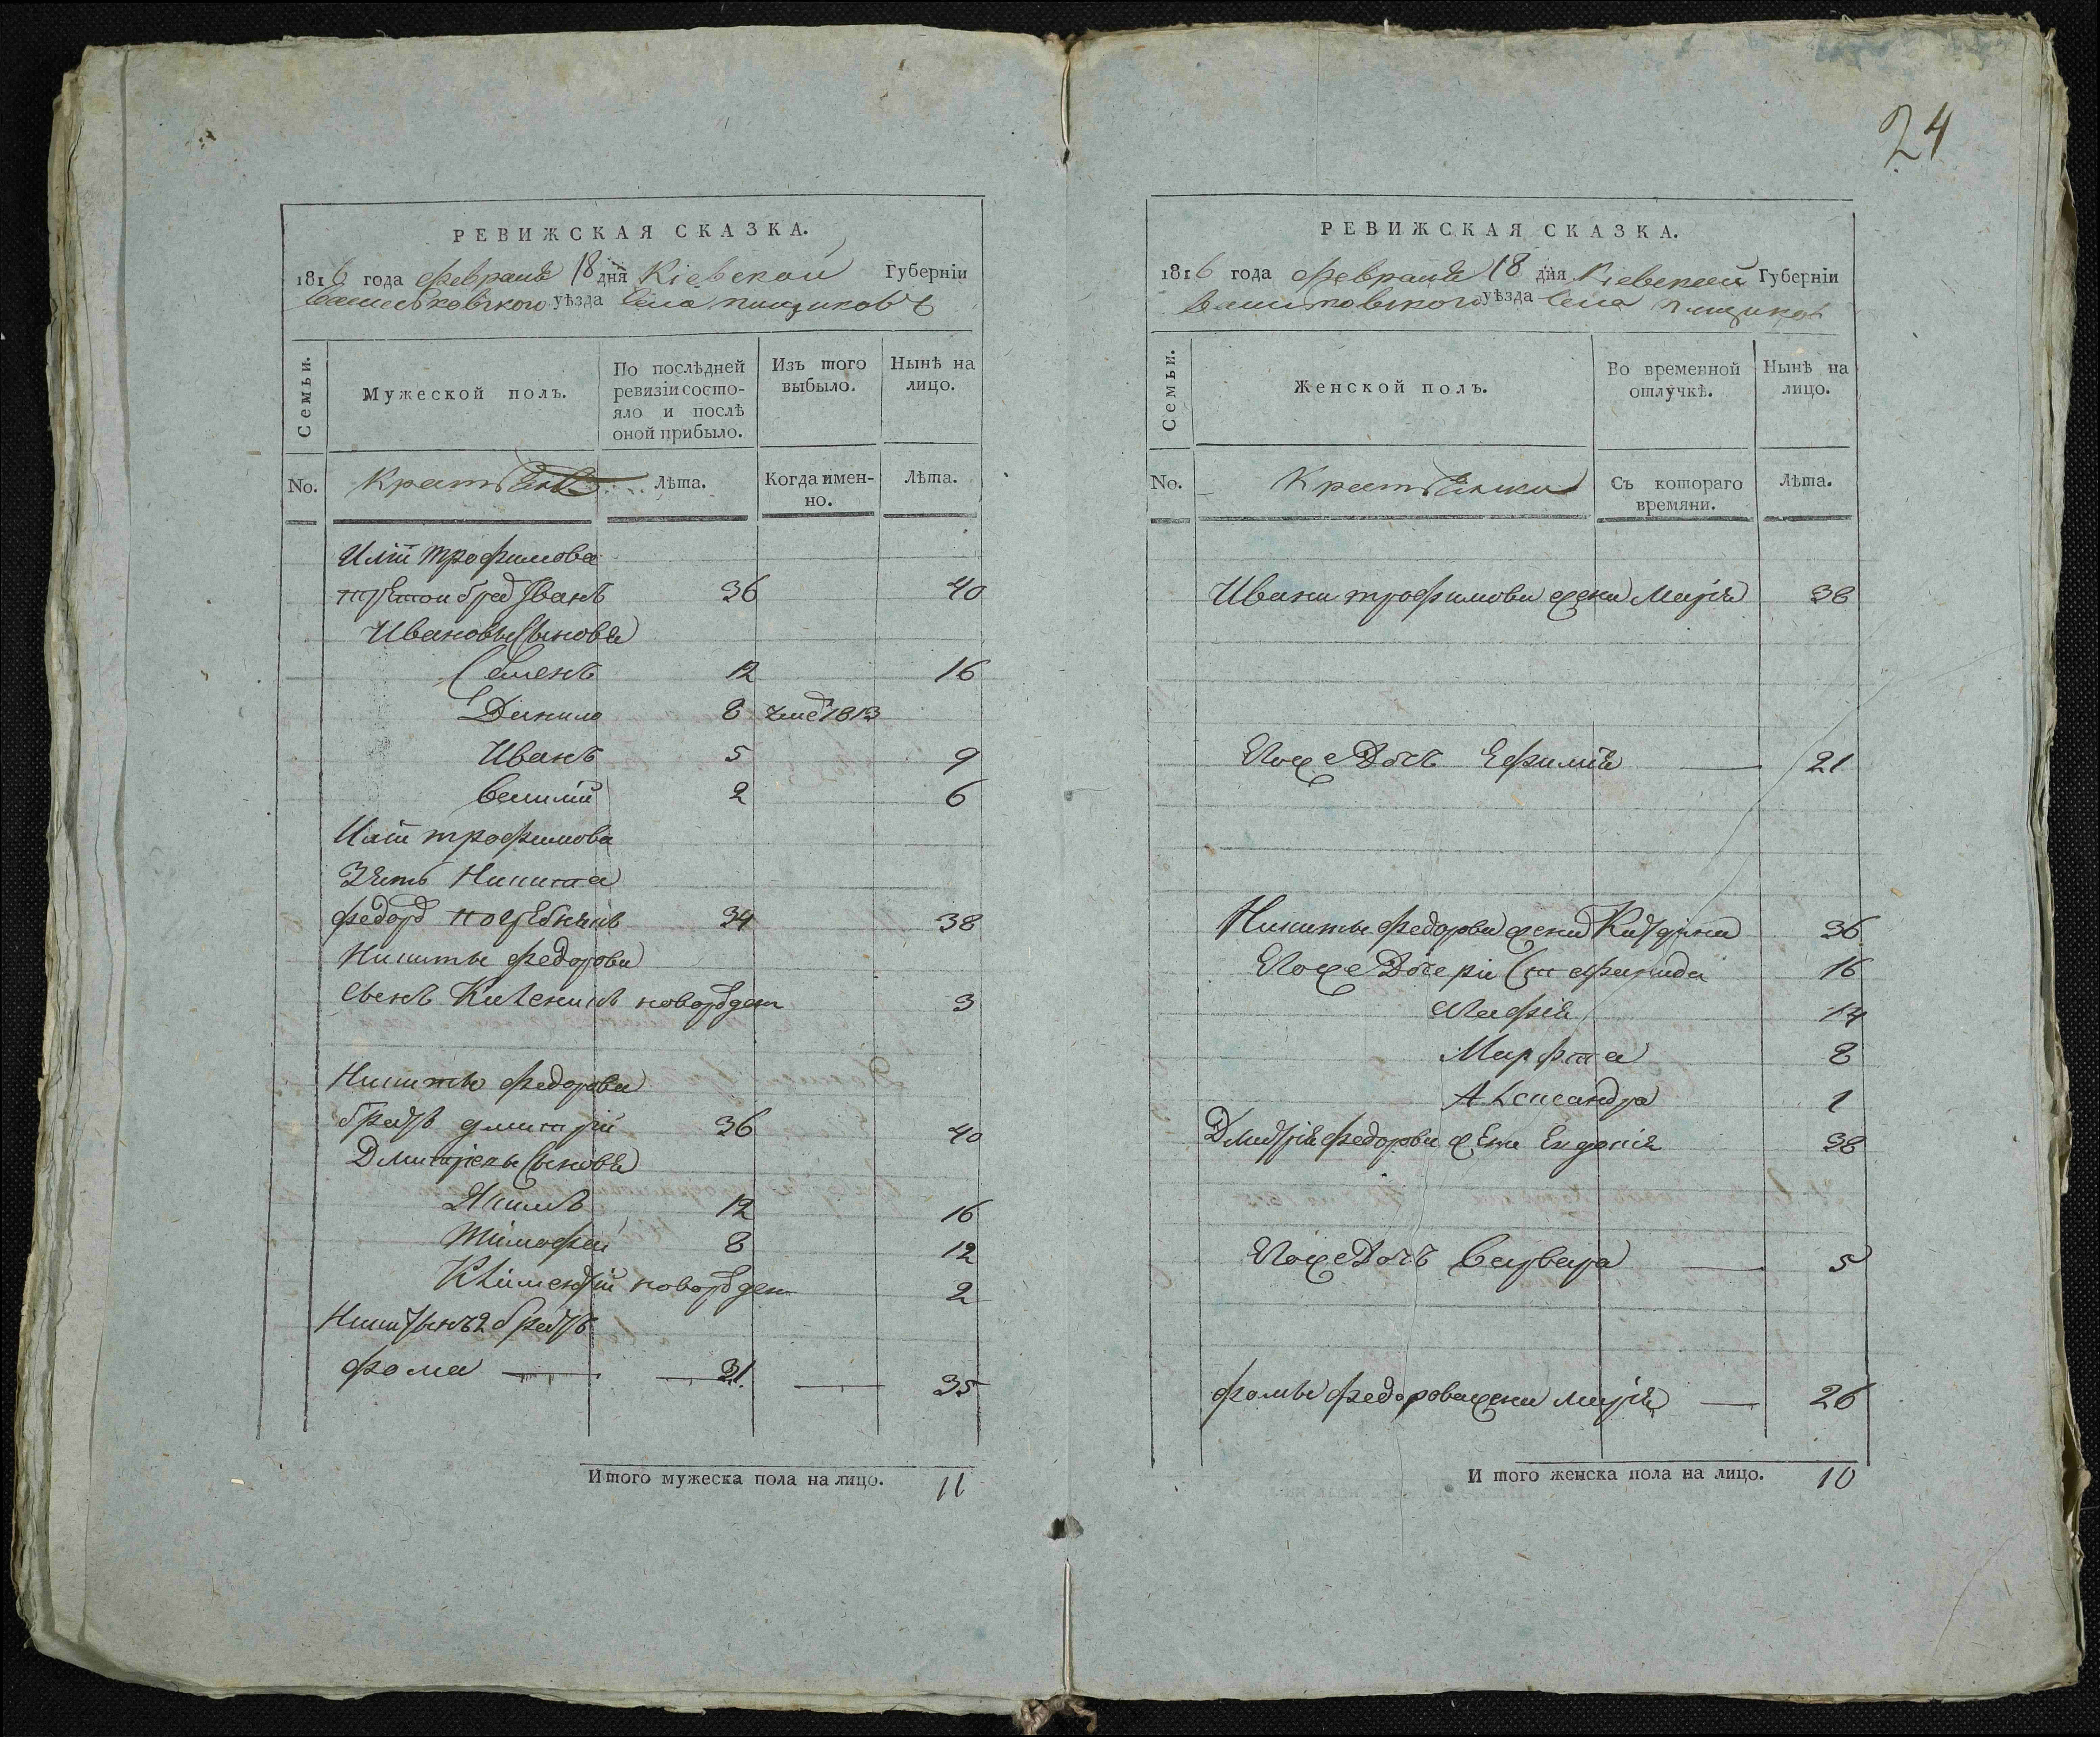 24
РЕВИЖСКАЯ СКАЗКА.
1816 года февраля 18 дня Кіевской Губерніи
Васильковского уѣзда Села пищиковъ
Семьи.
Мужеской полъ.
По послѣдней ревизіи состояло и послѣ оной прибыло.
Изъ того выбыло.
Нынѣ на лицо.
No.
Лѣта.
Когда именно.
Лѣта.
трофимова
третои брад Иванъ 36 40
Ивановы Сыновя
Семенъ 12 16
Данило 8 1813
Иванъ 5 9
Василій 2 6
трофимова
Зять Никита
федор 34 38
Никиты федорова
Сынъ новорожден 3
Никиты федорова
братъ дмитрій 36 40
Дмитріевы Сыновя
Якимъ 12 16
Тимофей 8 12
Кліментій новорожден 2
2 братъ
фома 31 35
Итого мужеска пола на лицо. 11
РЕВИЖСКАЯ СКАЗКА.
1816 года февраля 18 дня Кіевской Губерніи
Васильковского уѣзда Села пищиков
Семьи.
Женской полъ.
Во временной отлучкѣ.
Нынѣ на лицо.
No.
Съ котораго времяни.
Лѣта.
Ивана трофимова жена Марія 38
Его же Дочь Ефимія 21
Никиты федорова жена 36
Его же Дочери 16
14
Марфта 8
Александра 1
Дмитрія федорова жена Евдокія 38
Его же Дочь Варвара 5
фомы федорова жена марія 26
И того женска пола на лицо. 10